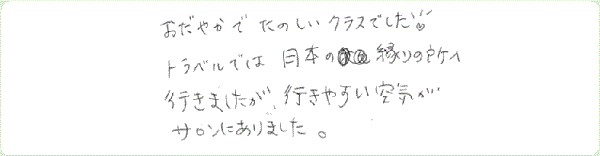 おだやかで たのしい クラスでした
トラベルでは 日本の 縁りの
行きましたが、行きやすい空気が
サロンにありました。